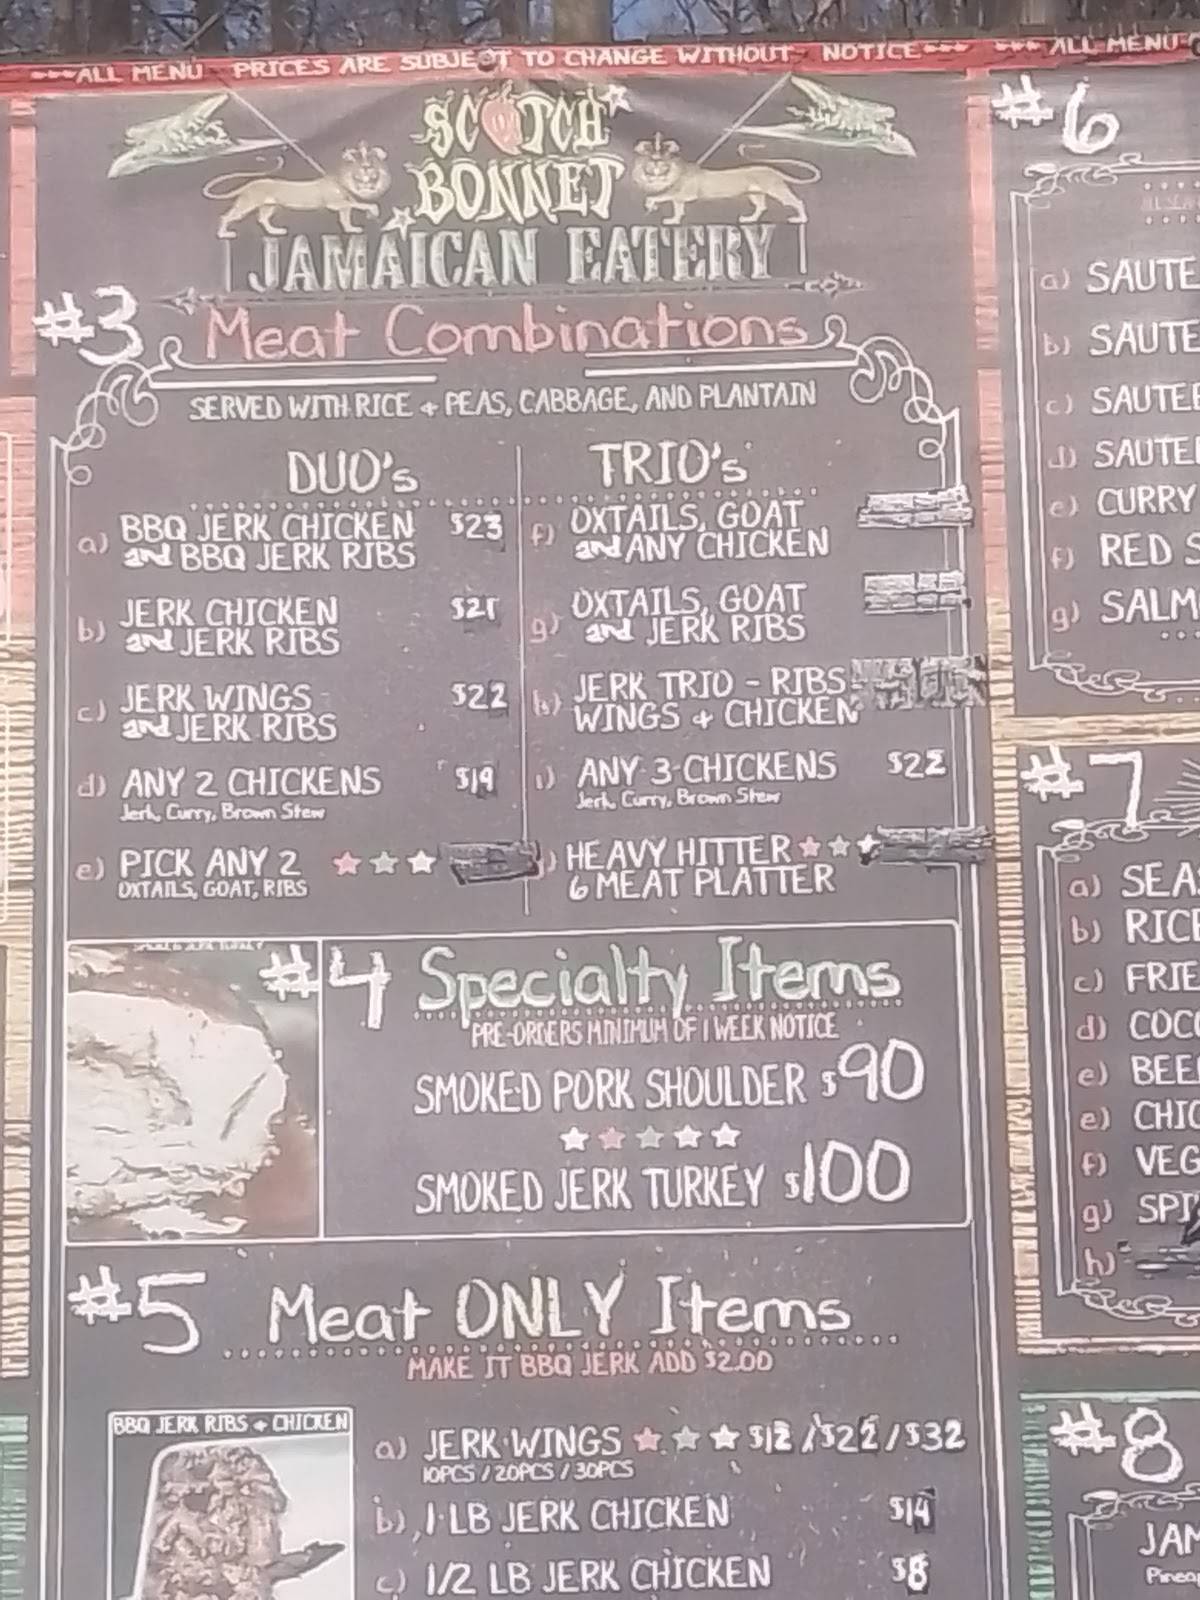 ***ALL MENU PRICES ARE SUBJECT TO CHANGE WITHOUT NOTICE*** *** ALL MENU
SCOTCH
BONNET
JAMAICAN EATERY
#3 Meat Combinations
SERVED WITH RICE + PEAS, CABBAGE, AND PLANTAIN
DUO's
a) BBQ JERK CHICKEN $23
and BBQ JERK RIBS
b) JERK CHICKEN $21
and JERK RIBS
c) JERK WINGS $22
and JERK RIBS
d) ANY 2 CHICKENS $19
Jerk, Curry, Brown Stew
e) PICK ANY 2
OXTAILS, GOAT, RIBS
TRIO's
f) OXTAILS, GOAT
and ANY CHICKEN
g) OXTAILS, GOAT
and JERK RIBS
h) JERK TRIO - RIBS
WINGS + CHICKEN
i) ANY 3 CHICKENS $22
Jerk, Curry, Brown Stew
HEAVY HITTER
6 MEAT PLATTER
#4 Specialty Items
PRE-ORDERS MINIMUM OF 1 WEEK NOTICE
SMOKED PORK SHOULDER $90
SMOKED JERK TURKEY $100
#5 Meat ONLY Items
MAKE IT BBQ JERK ADD $2.00
BBQ JERK RIBS + CHICKEN
a) JERK WINGS $12 / $22 / $32
10PCS / 20PCS / 30PCS
b) 1 LB JERK CHICKEN $14
c) 1/2 LB JERK CHICKEN $8
#6
a) SAUTE
b) SAUTE
c) SAUTE
d) SAUTE
e) CURRY
f) RED S
g) SALM
#7
a) SEA
b) RICE
c) FRIE
d) COC
e) BEE
e) CHIC
f) VEG
g) SPI
h)
#8
JAM
Pineap